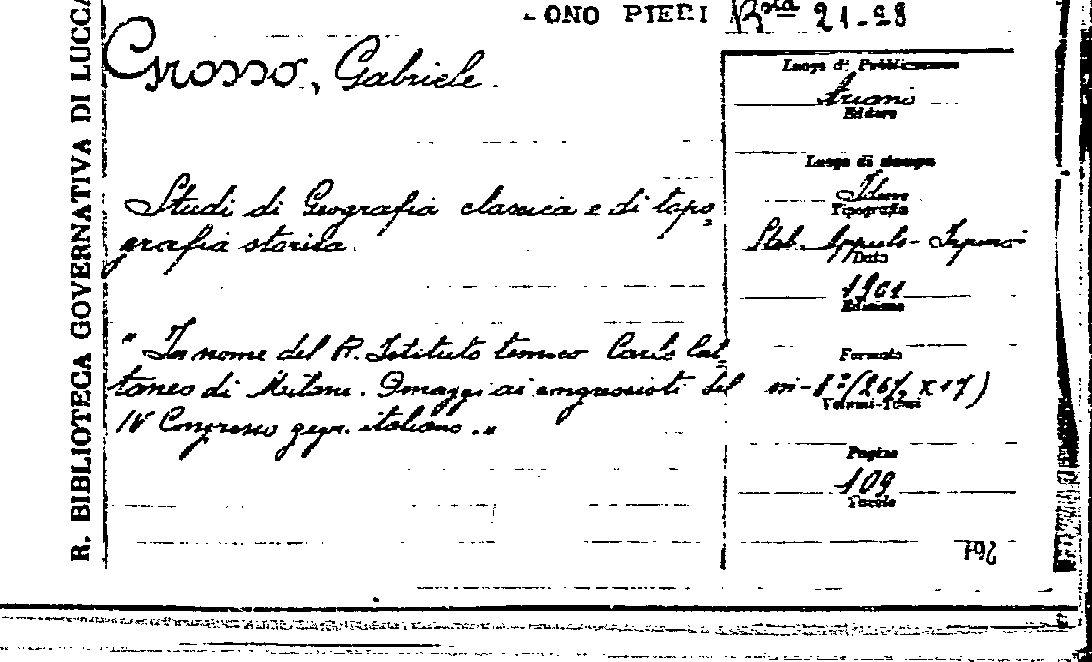 R. BIBLIOTECA GOVERNATIVA DI LUCCA
ONO PIERI Bsta 21-28
Grosso, Gabriele.
Studi di Geografia classica e di topo
grafia storica.
" In nome del R. Istituto tecnico Carlo Cat
taneo di Milano. Omaggi ai congressisti del
IV Congresso geogr. italiano."
Luogo di Pubblicazione
Ariano
Editore
Luogo di stampa
Idem
Tipografia
Stab. Appulo-Irpino
Data
1901
Edizione
Formato
in-8º (26½ x 17)
Volumi-Tomi
Pagine
109
Tavole